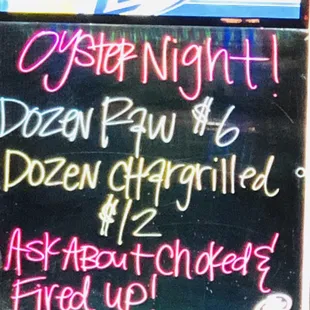 Oyster Night!
Dozen Raw $6
Dozen Chargrilled
$12
Ask About Choked &
Fired up!